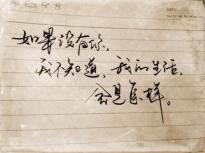 如果没有你，
我不知道，我的生活，
会是怎样。